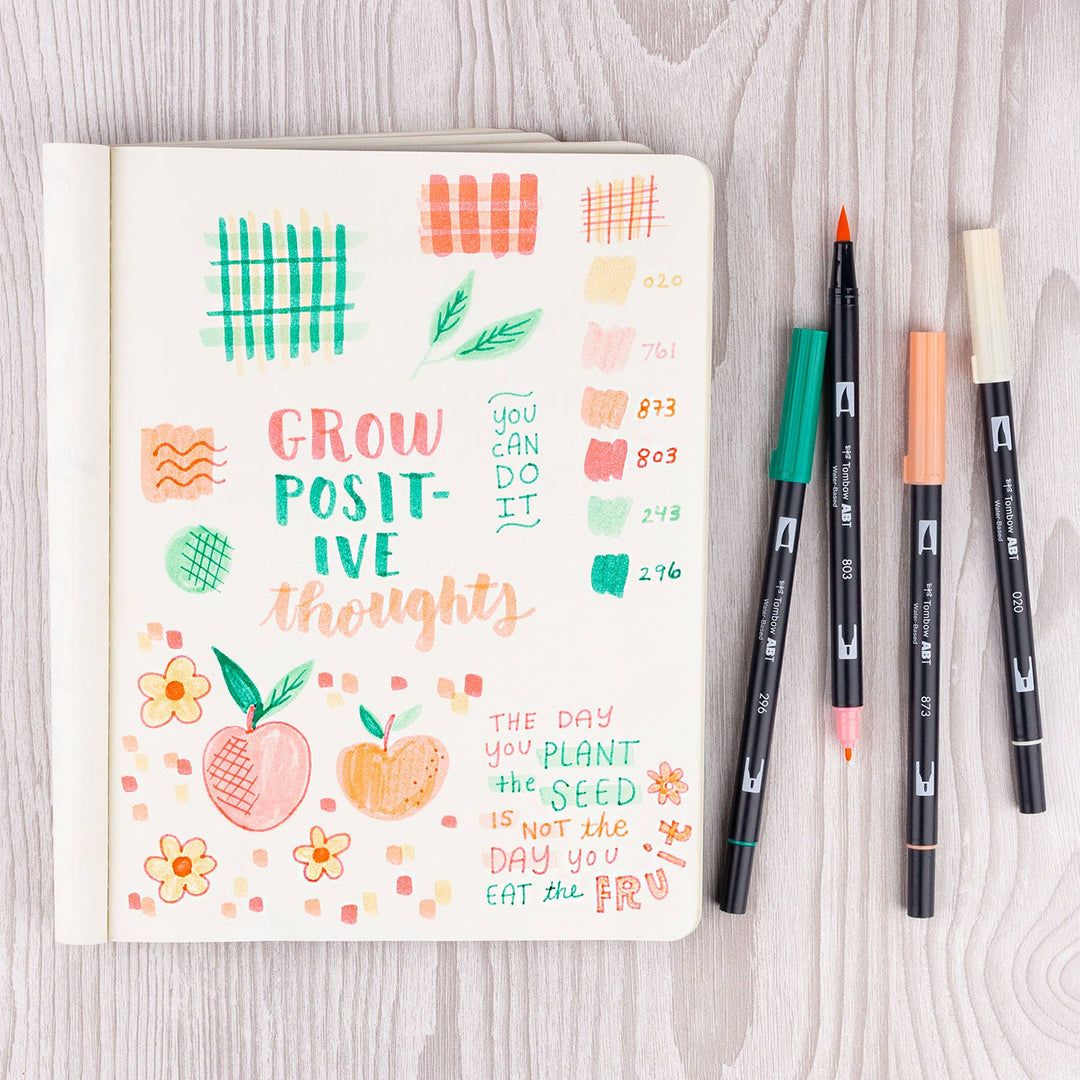 GROW
POSIT-
IVE
thoughts
YOU
CAN
DO
IT
020
761
873
803
243
296
THE DAY
you PLANT
the SEED
IS NOT the
DAY you
EAT the FRUIT
Tombow ABT
Water-Based
296
Tombow ABT
Water-Based
803
Tombow ABT
Water-Based
873
Tombow ABT
Water-Based
020